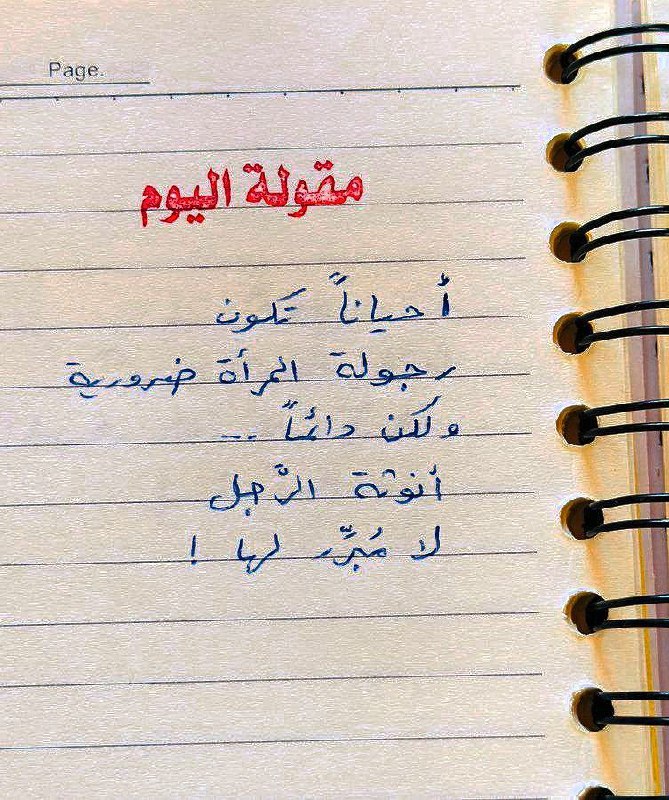 Page.
مقولة اليوم
أحياناً تكون
رجولة المرأة ضرورية
ولكن دائماً ...
أنوثة الرَّجل
لا مُبرِّر لها !